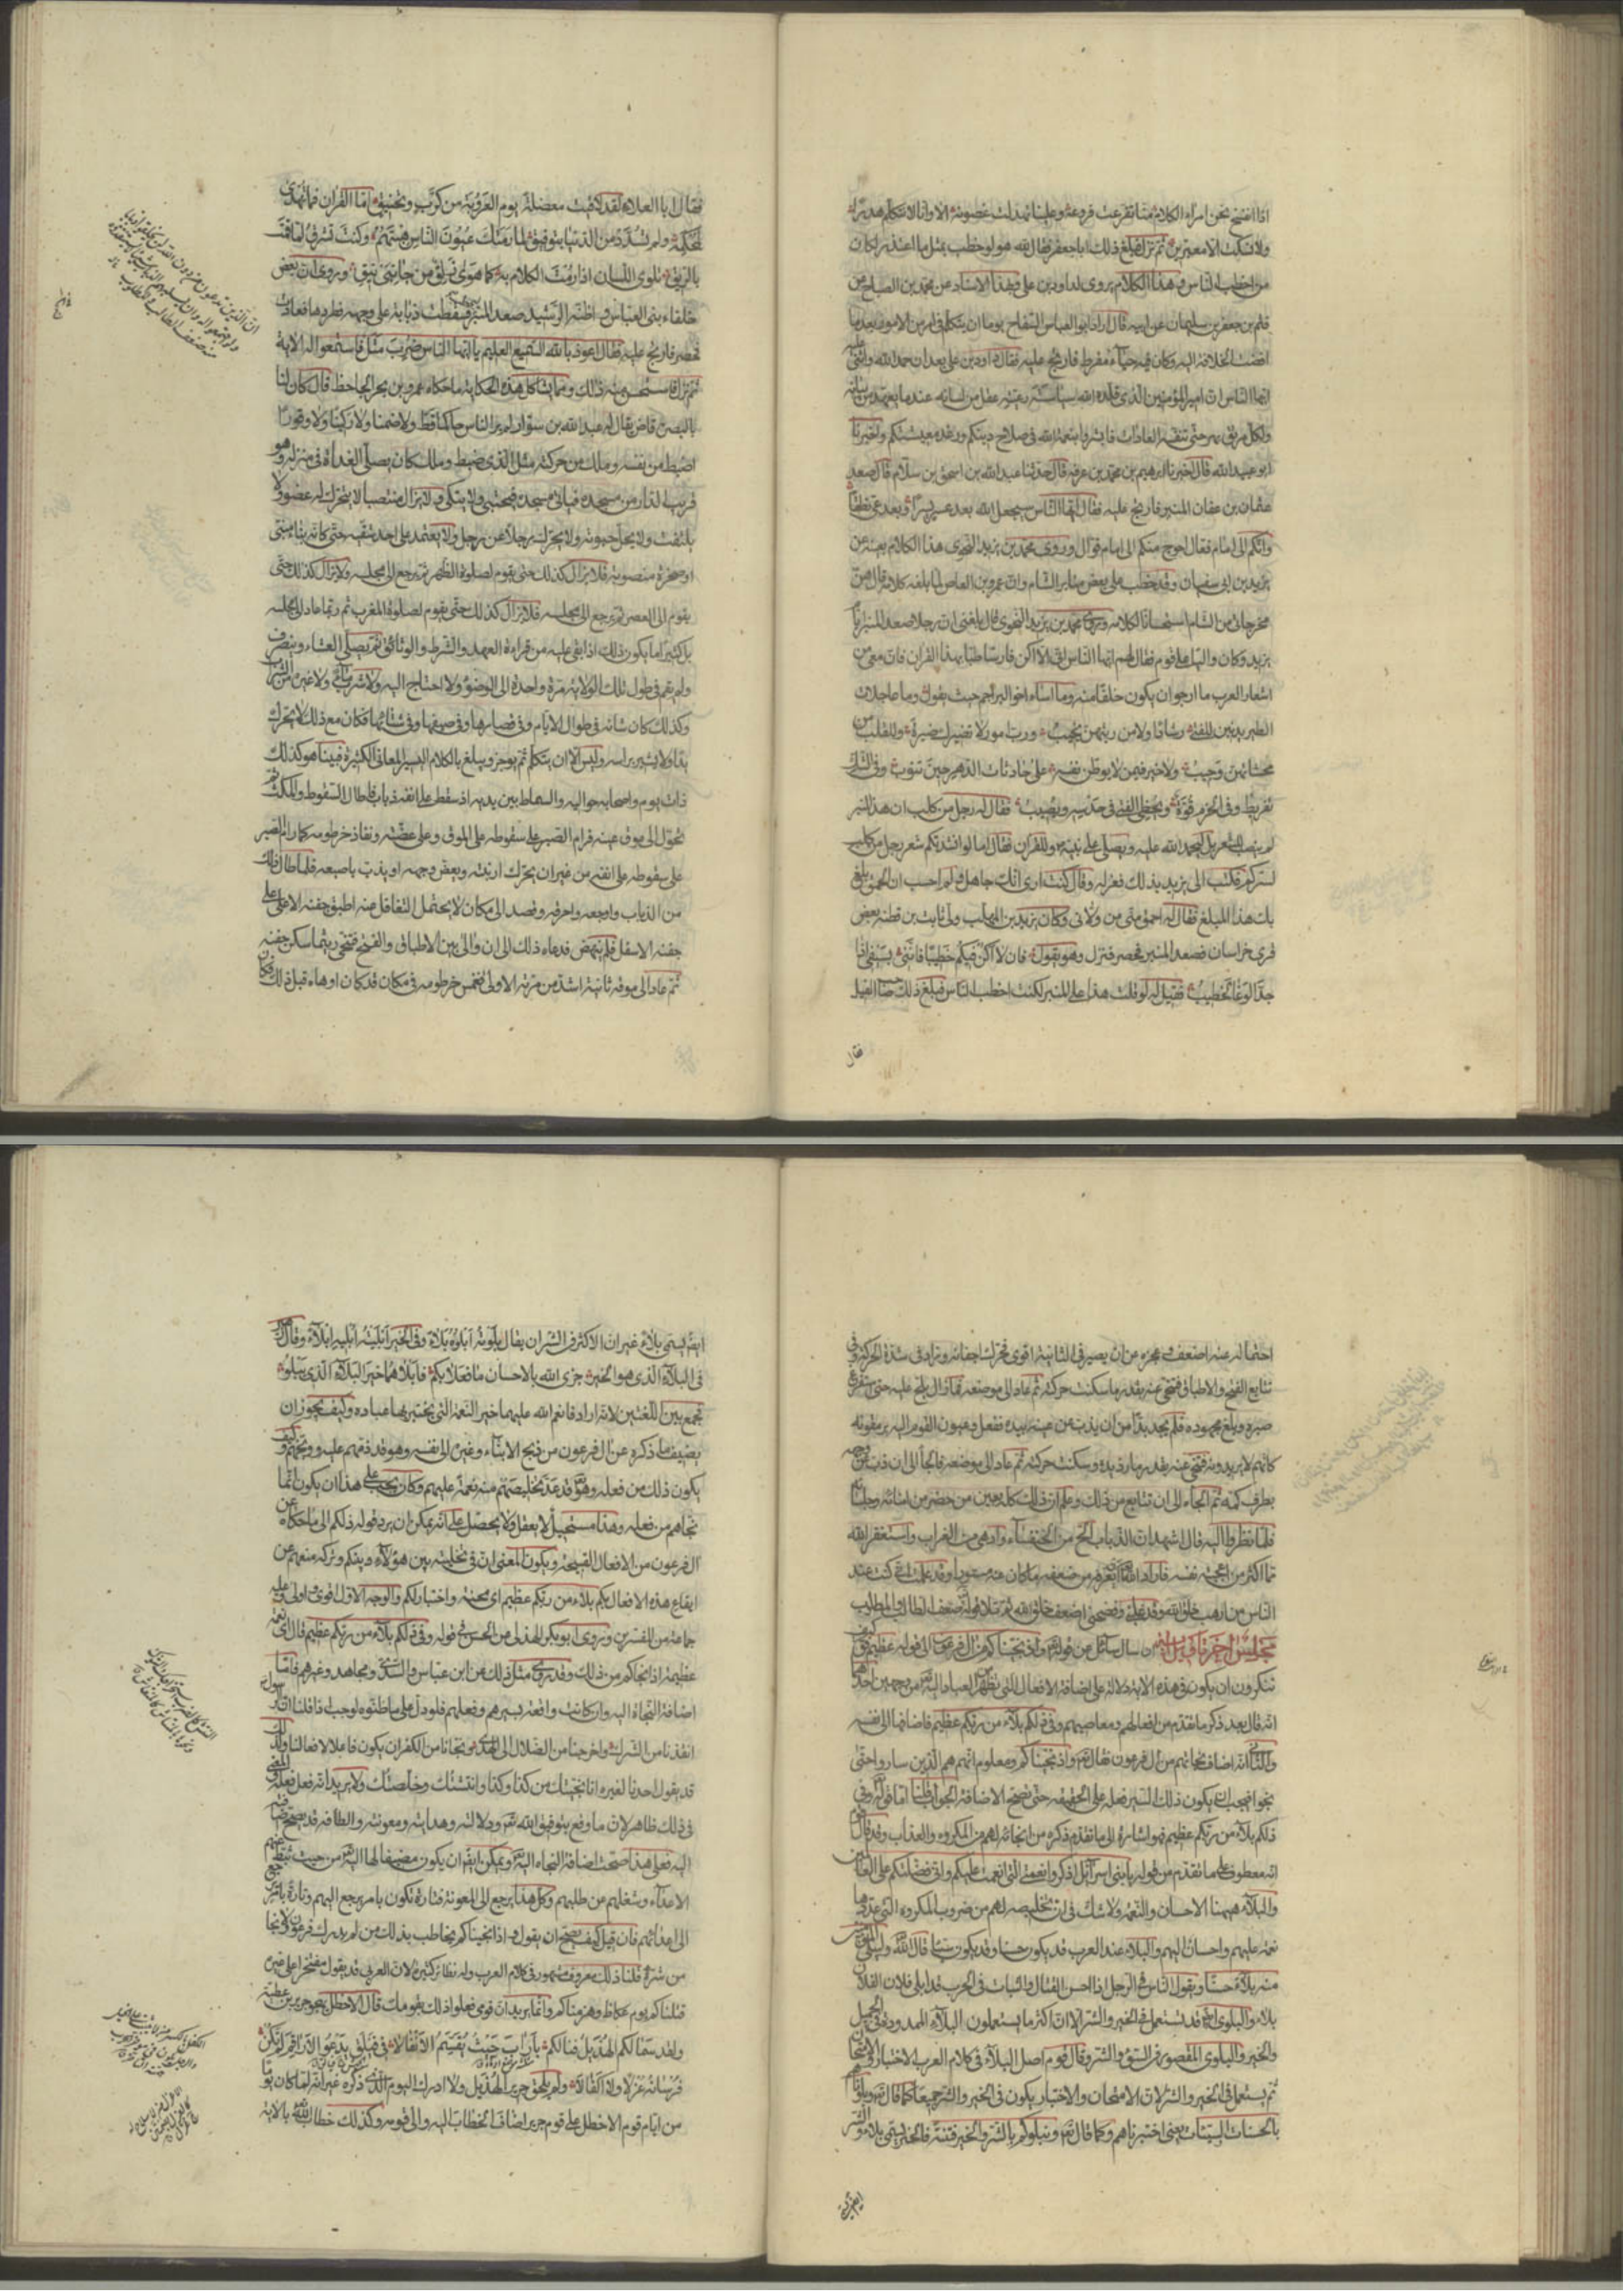 اذا افتتح نحن امراء الكلام منا تفرعت فروعه وعلينا تهدلت غصونه الا وانا لا نتكلم هدرا
ولا نسكت الا معتبرين ثم نزل فبلغ ذلك ابا جعفر فقال لله هو لو خطب بمثل ما اعتذر لكان
من اخطب الناس وهذا الكلام يروى لداود بن على وبهذا الاسناد عن محمد بن الصباح عن
قثم بن جعفر بن سليمان عن ابيه قال اراد ابو العباس السفاح يوما ان يتكلم فى امر من الامور بعد ما
افضت الخلافة اليه وكان فيه حياء مفرط فارتج عليه فقال داود بن على بعد ان حمد الله واثنى عليه
ايها الناس ان امير المؤمنين الذى قلده الله سياسة رعيته عقل من لسانه عند ما تعهد من بيانه
ولكل مرتق بهر حتى تنفسه العادات فابشروا بنعمة الله فى صلاح دينكم ورغد معيشتكم واخبرنا
ابو عبيد الله قال اخبرنا ابرهيم بن محمد بن عرفه قال حدثنا عبد الله بن اسحق بن سلام قال صعد
عثمان بن عفان المنبر فارتج عليه فقال ايها الناس سيجعل الله بعد عسر يسرا وبعد عى نطقا
وانكم الى امام فعال احوج منكم الى امام قوال وروى محمد بن يزيد النحوى هذا الكلام بعينه عن
يزيد بن ابى سفيان وقد خطب على بعض منابر الشام وان عمرو بن العاص لما بلغه كلامه قال هن
مخرجاتى من الشام استحسانا لكلامه وروى محمد بن يزيد النحوى قال بلغنى ان رجلا صعد المنبر ايام
يزيد وكان واليا على قوم فقال لهم ايها الناس انى الا اكن فارسا طبا بهذا القران فان معى من
اشعار العرب ما ارجو ان يكون خلفا منه وما اساء اخو البراجم حيث يقول وما عاجلات
الطير يدنين للفتى رشادا ولا من ريثهن يخيب ورب امور لا تضيرك ضيرة وللقلب من
مخشاتهن وجيب ولا خير فيمن لا يوطن نفسه على حادثات الدهر حين تنوب وفى الشك
تفريط وفى الحزم قوة ويخطى الفتى فى حدسه ويصيب فقال له رجل من كلب ان هذا المنبر
لم ينصب للشعر بل ليحمد الله عليه ويصلى على نبيه وللقران فقال اما لو انشدتكم شعر رجل من كلب
لسركم فكتب الى يزيد بذلك فعزله وقال كنت اراك جاهلا ولم احسب ان الحمق بلغ
بك هذا المبلغ فقال له احمق منى من ولانى وكان يزيد بن المهلب ولى ثابت بن قطنه بعض
قرى خراسان فصعد المنبر فحصر فنزل وهو يقول فان لا اكن فيكم خطيبا فاننى بسيفى اذا
جد الوغا لخطيب فقيل له لو قلت هذا على المنبر لكنت اخطب الناس فبلغ ذلك حاجب الفيل
فقال
فقال ابا العلاء لقد لاقيت معضلة يوم العروبة من كرب وتخنيق اما القران فما تهدى
لمحكمه ولم تسدد من الدنيا بتوفيق لما رمتك عيون الناس هبتهم وكنت تشرق لما قمت
بالريق تلوى اللسان اذا رمت الكلام به كما هوى زلق من جانبى نيق وروى ان بعض
خلفاء بنى العباس واظنه الرشيد صعد المنبر فسقطت ذبابة على وجهه فطردها فعادت
فحصر فارتج عليه فقال اعوذ بالله السميع العليم يا ايها الناس ضرب مثل فاستمعوا له الاية
ثم نزل فاستحسن منه ذلك ومما يشاكل هذه الحكاية ما حكاه عمرو بن بحر الجاحظ قال كان لنا
بالبصرة قاض يقال له عبد الله بن سوار لم ير الناس حاكما قط ولا ضمنا ولا ركينا ولا وقورا
اضبط من نفسه وملك من حركته مثل الذى ضبط وملك كان يصلى الغداة فى منزله وهو
قريب الدار من مسجده فياتى مسجده فيحتبى ولا يتكى ولا يزال منتصبا لا يتحرك له عضو ولا
يلتفت ولا يحل حبوته ولا يحرك رجلا عن رجل ولا يعتمد على احد شقيه حتى كانه بناء مبنى
او صخرة منصوبة فلا يزال كذلك حتى يقوم لصلوة الظهر ثم يرجع الى مجلسه ولا يزال كذلك حتى
يقوم الى العصر ثم يرجع الى مجلسه فلا يزال كذلك حتى يقوم لصلوة المغرب ثم ربما عاد الى مجلسه
بل كثيرا ما يكون ذلك اذا بقى عليه من قراءة العهد والشرط والوثائق ثم يصلى العشاء وينصرف
ولم يقم فى طول تلك الولاية مرة واحدة الى الوضوء ولا احتاج اليه ولا شرب ماء ولا غيره من الشراب
وكذلك كان شانه فى طوال الايام وفى قصارها وفى صيفها وفى شتائها فكان مع ذلك لا يحرك
يدا ولا يشير براسه وليس الا ان يتكلم ثم يوجز ويبلغ بالكلام اليسير المعانى الكثيرة فبينا هو كذلك
ذات يوم واصحابه حواليه والسماط بين يديه اذ سقط على انفه ذباب فاطال السقوط والمكث ثم
تحول الى موق عينه فرام الصبر على سقوطه على الموق وعلى عضته ونفاذ خرطومه كما رام الصبر
على سقوطه على انفه من غير ان يحرك ارنبته ويغض وجهه او يذب باصبعه فلما طال ذلك
من الذباب واوجعه واحرقه وقصد الى مكان لا يحتمل التغافل عنه اطبق جفنه الاعلى على
جفنه الاسفل فلم ينهض فدعاه ذلك الى ان والى بين الاطباق والفتح فتنحى ريثما سكن جفنه
ثم عاد الى موقه ثانية اشد من مرته الاولى فغمس خرطومه فى مكان قد كان اوهاه قبل ذلك فكان
ان الذين تدعون من دون الله لن يخلقوا ذبابا
ولو اجتمعوا له وان يسلبهم الذباب شيئا لا يستنقذوه
منه ضعف الطالب والمطلوب
احتماله عنه اضعف وعجزه عن ان يصبر فى الثانية اقوى فحرك اجفانه وزاد فى شدة الحركة وفى
تتابع الفتح والاطباق فتنحى عنه بقدر ما سكنت حركته ثم عاد الى موضعه فما زال يلح عليه حتى استفرغ
صبره وبلغ مجهوده فلم يجد بدا من ان يذب عن عينه بيده ففعل وعيون القوم اليه يرمقونه
كانهم لا يرونه فتنحى عنه بقدر ما رد يده وسكنت حركته ثم عاد الى موضعه فالجأ الى ان ذب عن وجهه
بطرف كمه ثم الجأه الى ان تتابع من ذلك وعلم ان ذلك كله بعين من حضر من امنائه وجلسائه
فلما نظروا اليه قال اشهد ان الذباب الج من الخنفساء وازهى من الغراب واستغفر الله
فما اكثر من اعجبته نفسه فاراد الله ان يعرفه من ضعفه ما كان عنه مستورا وقد علمت انى كنت عند
الناس من ارهب خلق الله وقد غلبنى وفضحنى اضعف خلق الله ثم تلا قوله ضعف الطالب والمطلوب
مجلس اخر تاويل ان سال سائل عن قوله واذ نجيناكم من ال فرعون الى قوله عظيم
تنكرون ان يكون فى هذه الاية دلالة على اضافة الافعال التى تظهر من العباد اليه من وجهين احدهما
انه قال بعد ذكر ما تقدم من افعالهم ومعاصيهم وفى ذلكم بلاء من ربكم عظيم فاضافها الى نفسه
والثانى انه اضاف نجاتهم من ال فرعون فقال واذ نجيناكم ومعلوم انهم هم الذين ساروا حتى
نجوا فيجب ان يكون ذلك السير فعله على الحقيقة حتى تصح الاضافة الجواب قلنا اما قوله وفى
ذلكم بلاء من ربكم عظيم فهو اشارة الى ما تقدم ذكره من انجائه لهم من المكروه والعذاب وقد قال
انه معطوف على ما تقدم من قوله يا بنى اسرائيل اذكروا نعمتى التى انعمت عليكم وانى فضلتكم على العالمين
والبلاء ههنا الاحسان والنعمة ولا شك فى ان تخليصه لهم من ضروب المكروه التى عددها
نعمة عليهم واحسان اليهم والبلاء عند العرب قد يكون حسنا وقد يكون سيئا قال وليبلى المؤمنين
منه بلاء حسنا ويقول الناس فى الرجل اذا احسن القتال والثبات فى الحرب قد ابلى فلان
بلاء والبلوى ايضا قد تستعمل فى الخير والشر الا ان اكثر ما يستعملون البلاء الممدود فى الجميل
والخير والبلوى المقصور فى السوء والشر وقال قوم اصل البلاء فى كلام العرب الاختبار والامتحان
ثم يستعمل فى الخير والشر لان الامتحان والاختبار يكون فى الخير والشر جميعا كما قال وبلوناهم
بالحسنات والسيئات يعنى اختبرناهم وكما قال ونبلوكم بالشر والخير فتنة فالخير يسمى بلاء والشر
ايضا يسمى بلاء غير ان الاكثر فى الشر ان يقال بلوته ابلوه بلاء وفى الخير ابليته ابليه ابلاء وقال
فى البلاء الذى هو الخير جزى الله بالاحسان ما فعلا بكم فابلاهما خير البلاء الذى يبلو
فجمع بين اللغتين لانه اراد فانعم الله عليهما خير النعمة التى يختبر بها عباده وكيف يجوز ان
يضيف ما ذكره عن ال فرعون من ذبح الابناء وغيره الى نفسه وهو قد ذمهم عليه ووبخهم وكيف
يكون ذلك من فعله وهو قد عد تخليصهم منه نعمة عليهم وكان يجب على هذا ان يكون انما
نجاهم من فعله وهذا مستحيل لا يعقل ولا يحصل على انه يمكن ان يرد قوله ذلكم الى ما حكاه عن
ال فرعون من الافعال القبيحة ويكون المعنى ان فى تخليته بين هؤلاء وبينكم وتركه منعهم عن
ايقاع هذه الافعال بكم بلاء من ربكم عظيم اى محنة واختبار لكم والوجه الاول اقوى واولى وعليه
جماعة من المفسرين وروى ابو بكر الهذلى عن الحسن فى قوله وفى ذلكم بلاء من ربكم عظيم قال اى نعمة
عظيمة اذ انجاكم من ذلك وقد روى مثل ذلك عن ابن عباس والسدى ومجاهد وغيرهم فاما
اضافة النجاة اليه وان كانت واقعة بسيرهم وفعلهم فلو دل على ما ظنوه لوجب اذا قلنا ان الرسول
انقذنا من الشرك واخرجنا من الضلال الى الهدى ونجانا من الكفر ان يكون فاعلا لافعالنا وكذلك
قد يقول احدنا لغيره انا نجيتك من كذا وكذا وانتشتك وخلصتك ولا يريد انه فعل فعله والمعنى
فى ذلك ظاهر لان ما وقع بتوفيق الله ودلالته وهدايته ومعونته والطافه قد يصح اضافته
اليه فعلى هذا صحت اضافة النجاة اليه ويمكن ايضا ان يكون مضيفا لها اليه من حيث ثبط عنهم
الاعداء وشغلهم عن طلبهم وكل هذا يرجع الى المعونة فتارة تكون بامر يرجع اليهم وتارة بامر يرجع
الى اعدائهم فان قيل كيف يصح ان يقول واذ انجيناكم يخاطب بذلك من لم يدرك فرعون ولا نجا
من شره قلنا ذلك معروف مشهور فى كلام العرب وله نظائر كثيرة لان العربى قد يقول مفتخرا على غيره
قتلناكم يوم عكاظ وهزمناكم وانما يريد ان قومى فعلوا ذلك بقومك قال الاخطل يهجو جرير بن عطية
ولقد سما لكم الهذيل فنالكم باراب حيث يقسم الانفالا فى فيلق يدعو الاراقم لم تكن
فرسانه عزلا ولا اكفالا ولم يلحق جرير الهذيل ولا ادرك اليوم الذى ذكره غير انه لما كان يوما
من ايام قوم الاخطل على قوم جرير اضاف الخطاب اليه والى قومه وكذلك خطاب الله بالاية